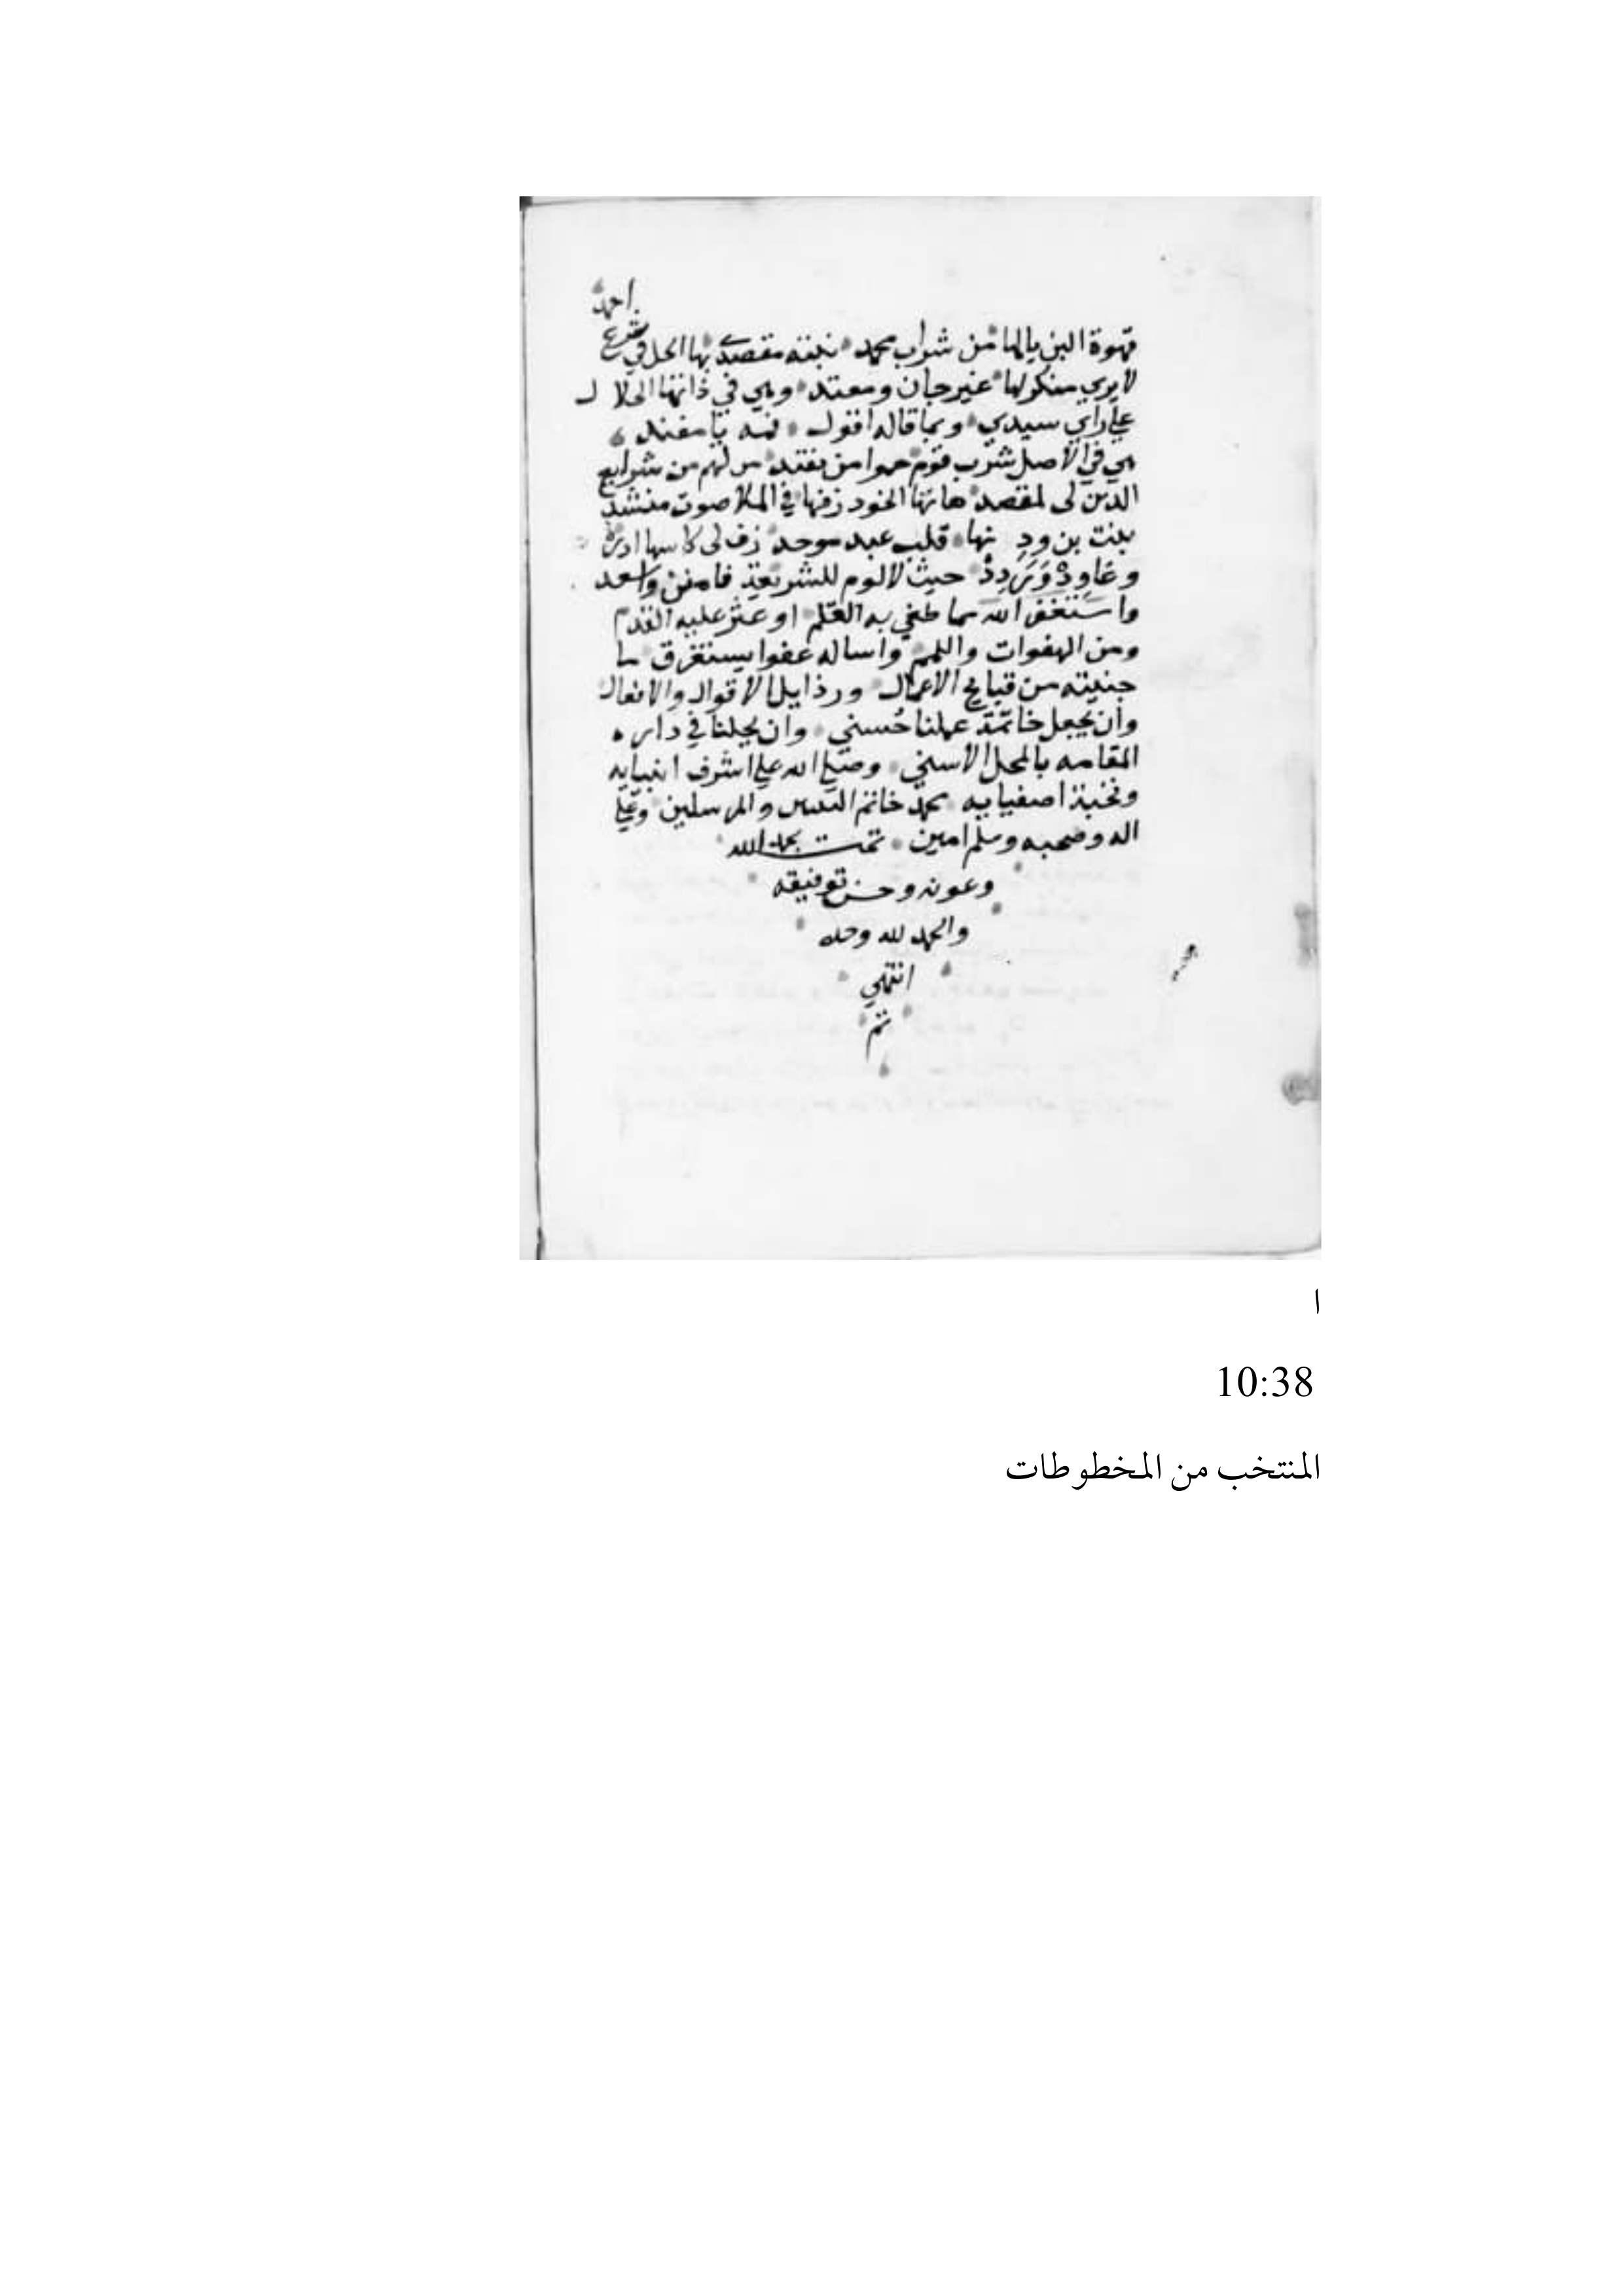 احمد
قهوة البن يالها من شراب محمد نلته مقصدي بها الحل في شرع
لا يري منكرلها غير جان ومعتد وهي في ذاتها الحلال
علي راي سيدي وبما قاله اقول فمه يا مفند
هي في الاصل شرب قوم حموا من يفتد من لهم من شرايع
الدين لي لمقصد هاتها الخود زفها في الملا صوت منشد
بنت بن ود نها قلب عبد موحد زف لي كاسها ادره
وعاود وردد حيث لا لوم للشريعة فامنن واسعد
واستغفر الله مما طغي به القلم او عثر عليه القدم
ومن الهفوات واللمم واساله عفوا يستغرق ما
جنيته من قبايح الاعمال ورذايل الاقوال والافعال
وان يجعل خاتمة عملنا حسني وان يحلنا في دار
المقامه بالمحل الاسني وصلي الله علي اشرف انبيايه
ونخبة اصفيايه محمد خاتم النبيين والمرسلين وعلي
اله وصحبه وسلم امين تمت بحمد الله
وعونه وحسن توفيقه
والحمد لله وحده
انتهي
تم
ا
10:38
المنتخب من المخطوطات